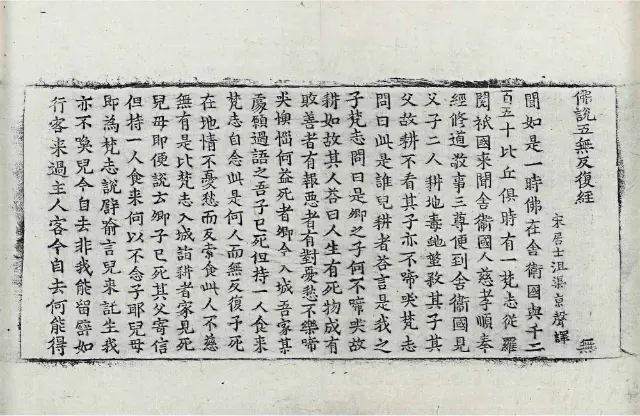 佛說五無反復經
宋居士沮渠京聲譯 無
聞如是一時佛在舍衞國與千二
百五十比丘俱時有一梵志從羅
閱祇國來聞舍衞國人慈孝順奉
經修道敬事三尊便到舍衞國見
父子二人耕地毒虵螫殺其子其
父故耕不看其子亦不啼哭梵志
問曰此是誰兒耕者荅言是我之
子梵志問曰是卿之子何不啼哭故
耕如故其人荅曰人生有死物成有
敗善者有報惡者有對憂愁不樂啼
哭懊惱何益死者卿今入城吾家某
處願過語之吾子已死但持一人食來
梵志自念此是何人而無反復子死
在地情不憂愁而反索食此人不慈
無有是比梵志入城詣耕者家見死
兒母即便說云卿子已死其父寄信
但持一人食來何以不念子耶兒母
即為梵志說譬喻言兒來託生我
亦不喚兒今自去非我能留譬如
行客來過主人客今自去何能得